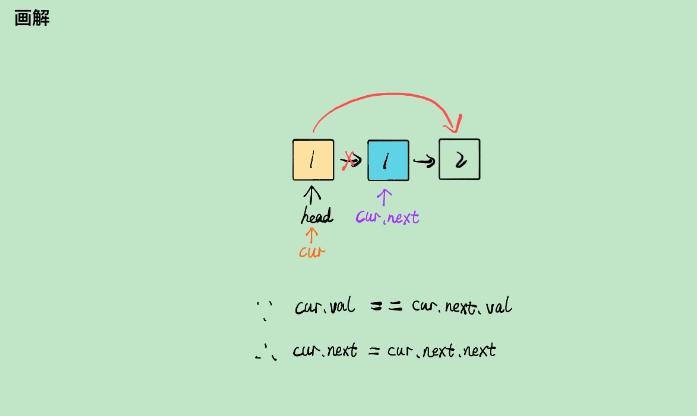 画解
1 1 2
head cur.next
cur
∵ cur.val == cur.next.val
∴ cur.next = cur.next.next